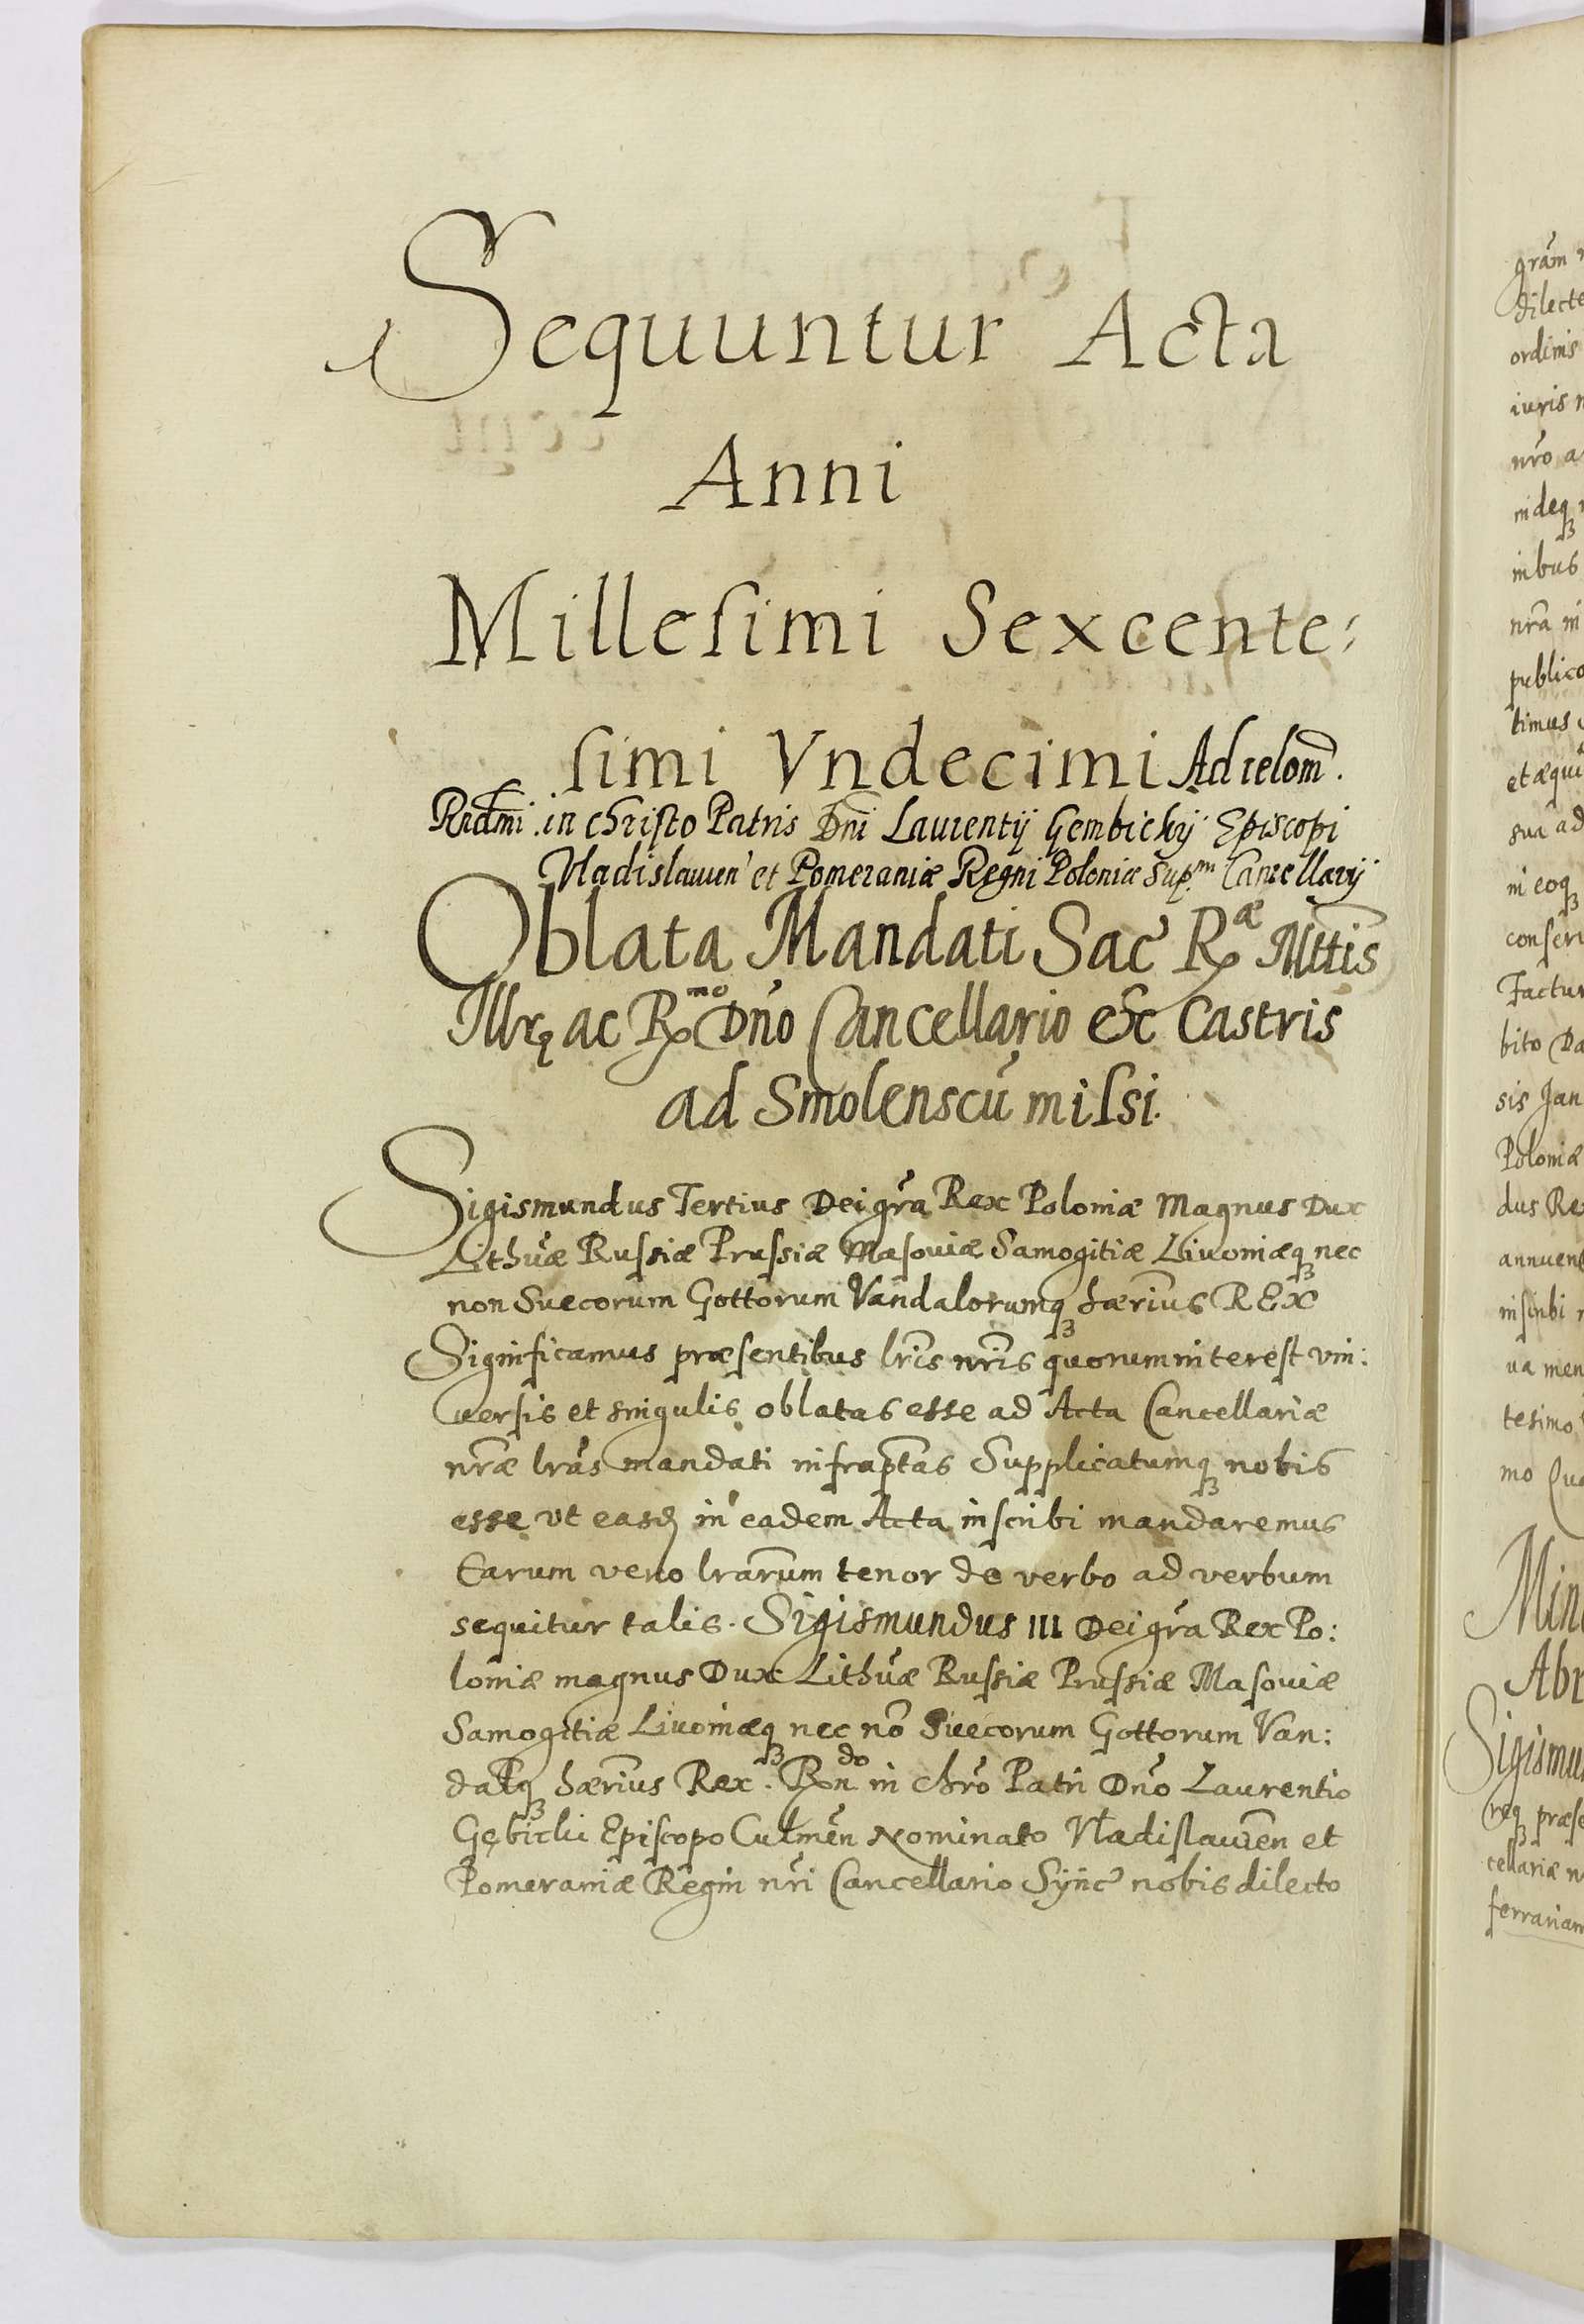 Sequuntur Acta
Anni
Millesimi Sexcente:
simi Vndecimi Ad relom̃.
Rndmi in Christo Patris Dni Laurentij Gembickij Episcopi
Vladislauien̄ et Pomeraniæ Regni Poloniæ Sup.m Cancellarij
Oblata Mandati Sac̃ Ræ Mttis
Illrę ac Rmo Dño Cancellario ex Castris
ad Smolenscũ missi.
Sigismundus Tertius Dei gr̃a Rex Poloniæ Magnus Dux
Lithũæ Russiæ Prussiæ Masouiæ Samogitiæ Liuoniæqꝫ nec
non Suecorum Gottorum Vandalorumqꝫ hærius REX
Significamus præsentibus lr̃is nr̃is quorum interest vni:
uersis et singulis oblatas esse ad Acta Cancellariæ
nr̃æ lr̃as mandati infrapt̃as Supplicatumqꝫ nobis
esse vt easđ in eadem Acta inscribi mandaremus
Earum vero lrarum tenor de verbo ad verbum
sequitur talis. Sigismundus III Dei gr̃a Rex Po:
loniæ magnus Dux Lithũæ Russiæ Prussiæ Masouiæ
Samogitiæ Liuoniæqꝫ nec nõ Suecorum Gottorum Van:
dalqꝫ hærius Rex. Rndo in chr̃o Patri Dño Laurentio
Gębicki Episcopo Culmẽn Nominato Vladislauiẽn et
Pomeraniæ Regni nr̃i Cancellario Sync̃ nobis dilecto
gram
dilecte
ordinis
iuris
nr̃o a
indeqꝫ
inbus
nr̃a in
publico
timus
et æqui
sua ad
in eoqꝫ
conseru
Factur
bito Da
sis Jan
Poloniæ
dus Rex
annuen
inscribi
ua men
tesimo
mo Qua
Min
Abr
Sigismu
reqꝫ præse
cellariæ n
ferrariam